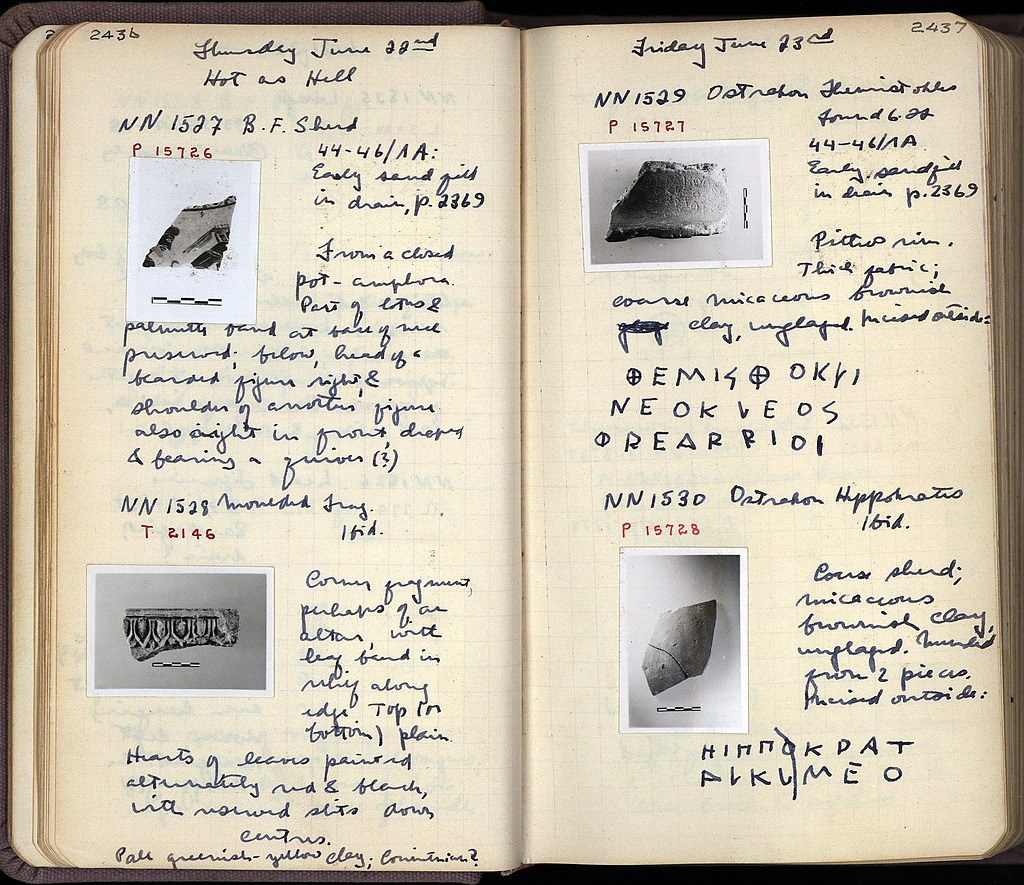 2436
Thursday June 22nd
Hot as Hell
NN 1527 B.F. Sherd
P 15726
44-46/ΛA:
Early sandfill
in drain, p. 2369
From a closed
pot - amphora.
Part of lotus &
palmette band at base of neck
preserved; below, head of a
bearded figure right, &
shoulder of another figure
also right in front, draped
& bearing a quiver (?)
NN 1528 Moulded Frag.
T 2146
Ibid.
Corner fragment,
perhaps of an
altar, with
leaf band in
relief along
edge. Top (or
bottom) plain.
Hearts of leaves painted
alternately red & black,
with reserved slits down
centres.
Pale greenish-yellow clay; Corinthian?
2437
Friday June 23rd
NN 1529 Ostrakon Themistokles
P 15727
found 6·22
44-46/ΛA
Early sandfill
in drain p. 2369
Pithos rim.
Thick fabric;
coarse micaceous brownish
clay, unglazed. Incised outside:
ΘEMISΘOKVI
NEOKVEOS
ΦREARRIOI
NN 1530 Ostrakon Hippokrates
P 15728
Ibid.
Coarse sherd;
micaceous
brownish clay,
unglazed. Mended
from 2 pieces.
Incised outside:
HIΠΠOKPAT
AVKVMEO